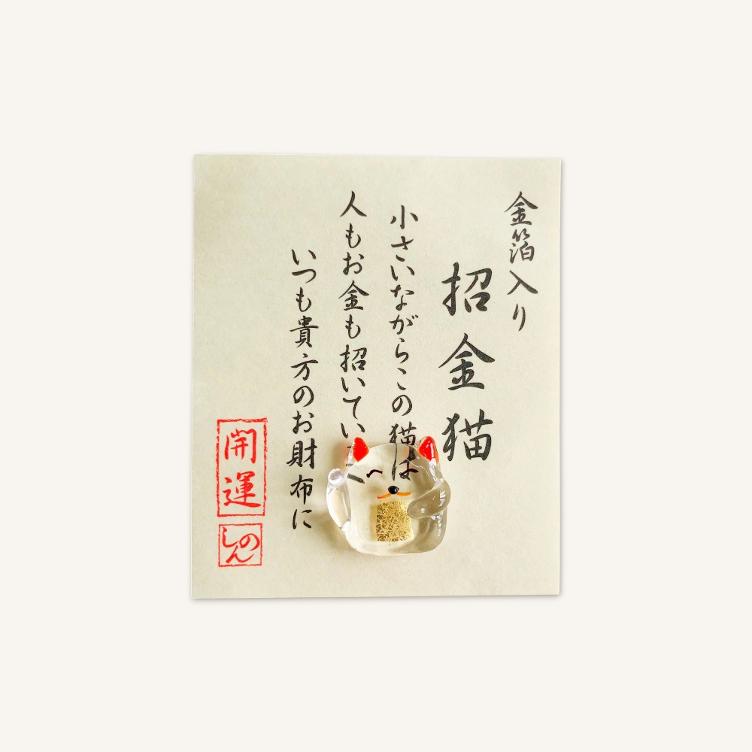 金箔入り
招金猫
小さいながらこの猫は
人もお金も招いてい
いつも貴方のお財布に
開運
しのん